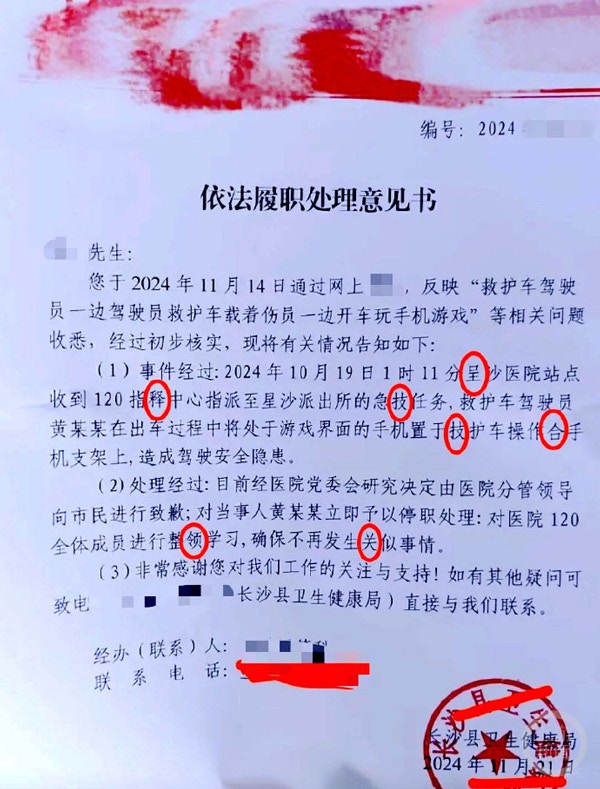 编号：2024
依法履职处理意见书
先生：
您于2024年11月14日通过网上，反映“救护车驾驶
员一边驾驶员救护车载着伤员一边开车玩手机游戏”等相关问题
收悉，经过初步核实，现将有关情况告知如下：
（1）事件经过：2024年10月19日1时11分呈沙医院站点
收到120指释中心指派至星沙派出所的急技任务，救护车驾驶员
黄某某在出车过程中将处于游戏界面的手机置于技护车操作合手
机支架上，造成驾驶安全隐患。
（2）处理经过：目前经医院党委会研究决定由医院分管领导
向市民进行致歉；对当事人黄某某立即予以停职处理；对医院120
全体成员进行整领学习，确保不再发生关似事情。
（3）非常感谢您对我们工作的关注与支持！如有其他疑问可
致电 长沙县卫生健康局）直接与我们联系。
经办（联系）人：
联系电话：
长沙县卫生健康局
2024年11月21日